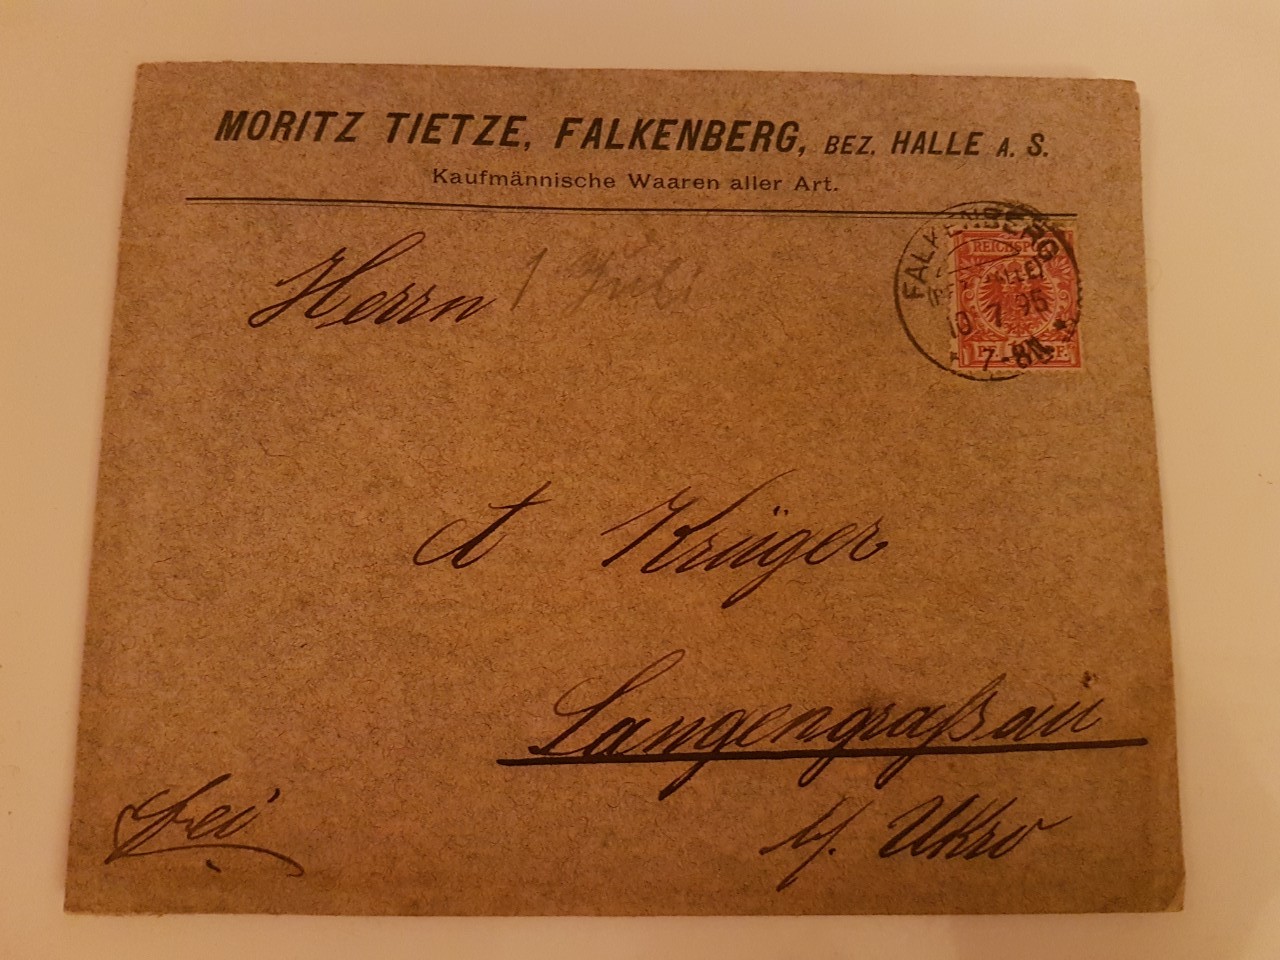 MORITZ TIETZE, FALKENBERG, BEZ. HALLE A. S.
Kaufmännische Waaren aller Art.
FALKENBERG
REICHSPOST
10 7 95
7-8N.
PF. F.
Herrn
1 Juli
A Krüger
Langengraßau
b/. Ukro
frei